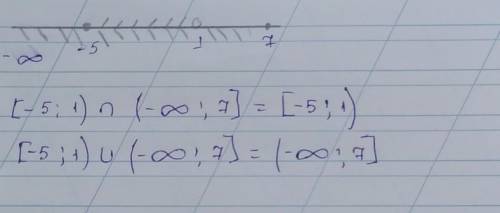 -∞ -5 1 7
[-5 ; 1) ∩ (-∞ ; 7] = [-5 ; 1)
[-5 ; 1) ∪ (-∞ ; 7] = (-∞ ; 7]